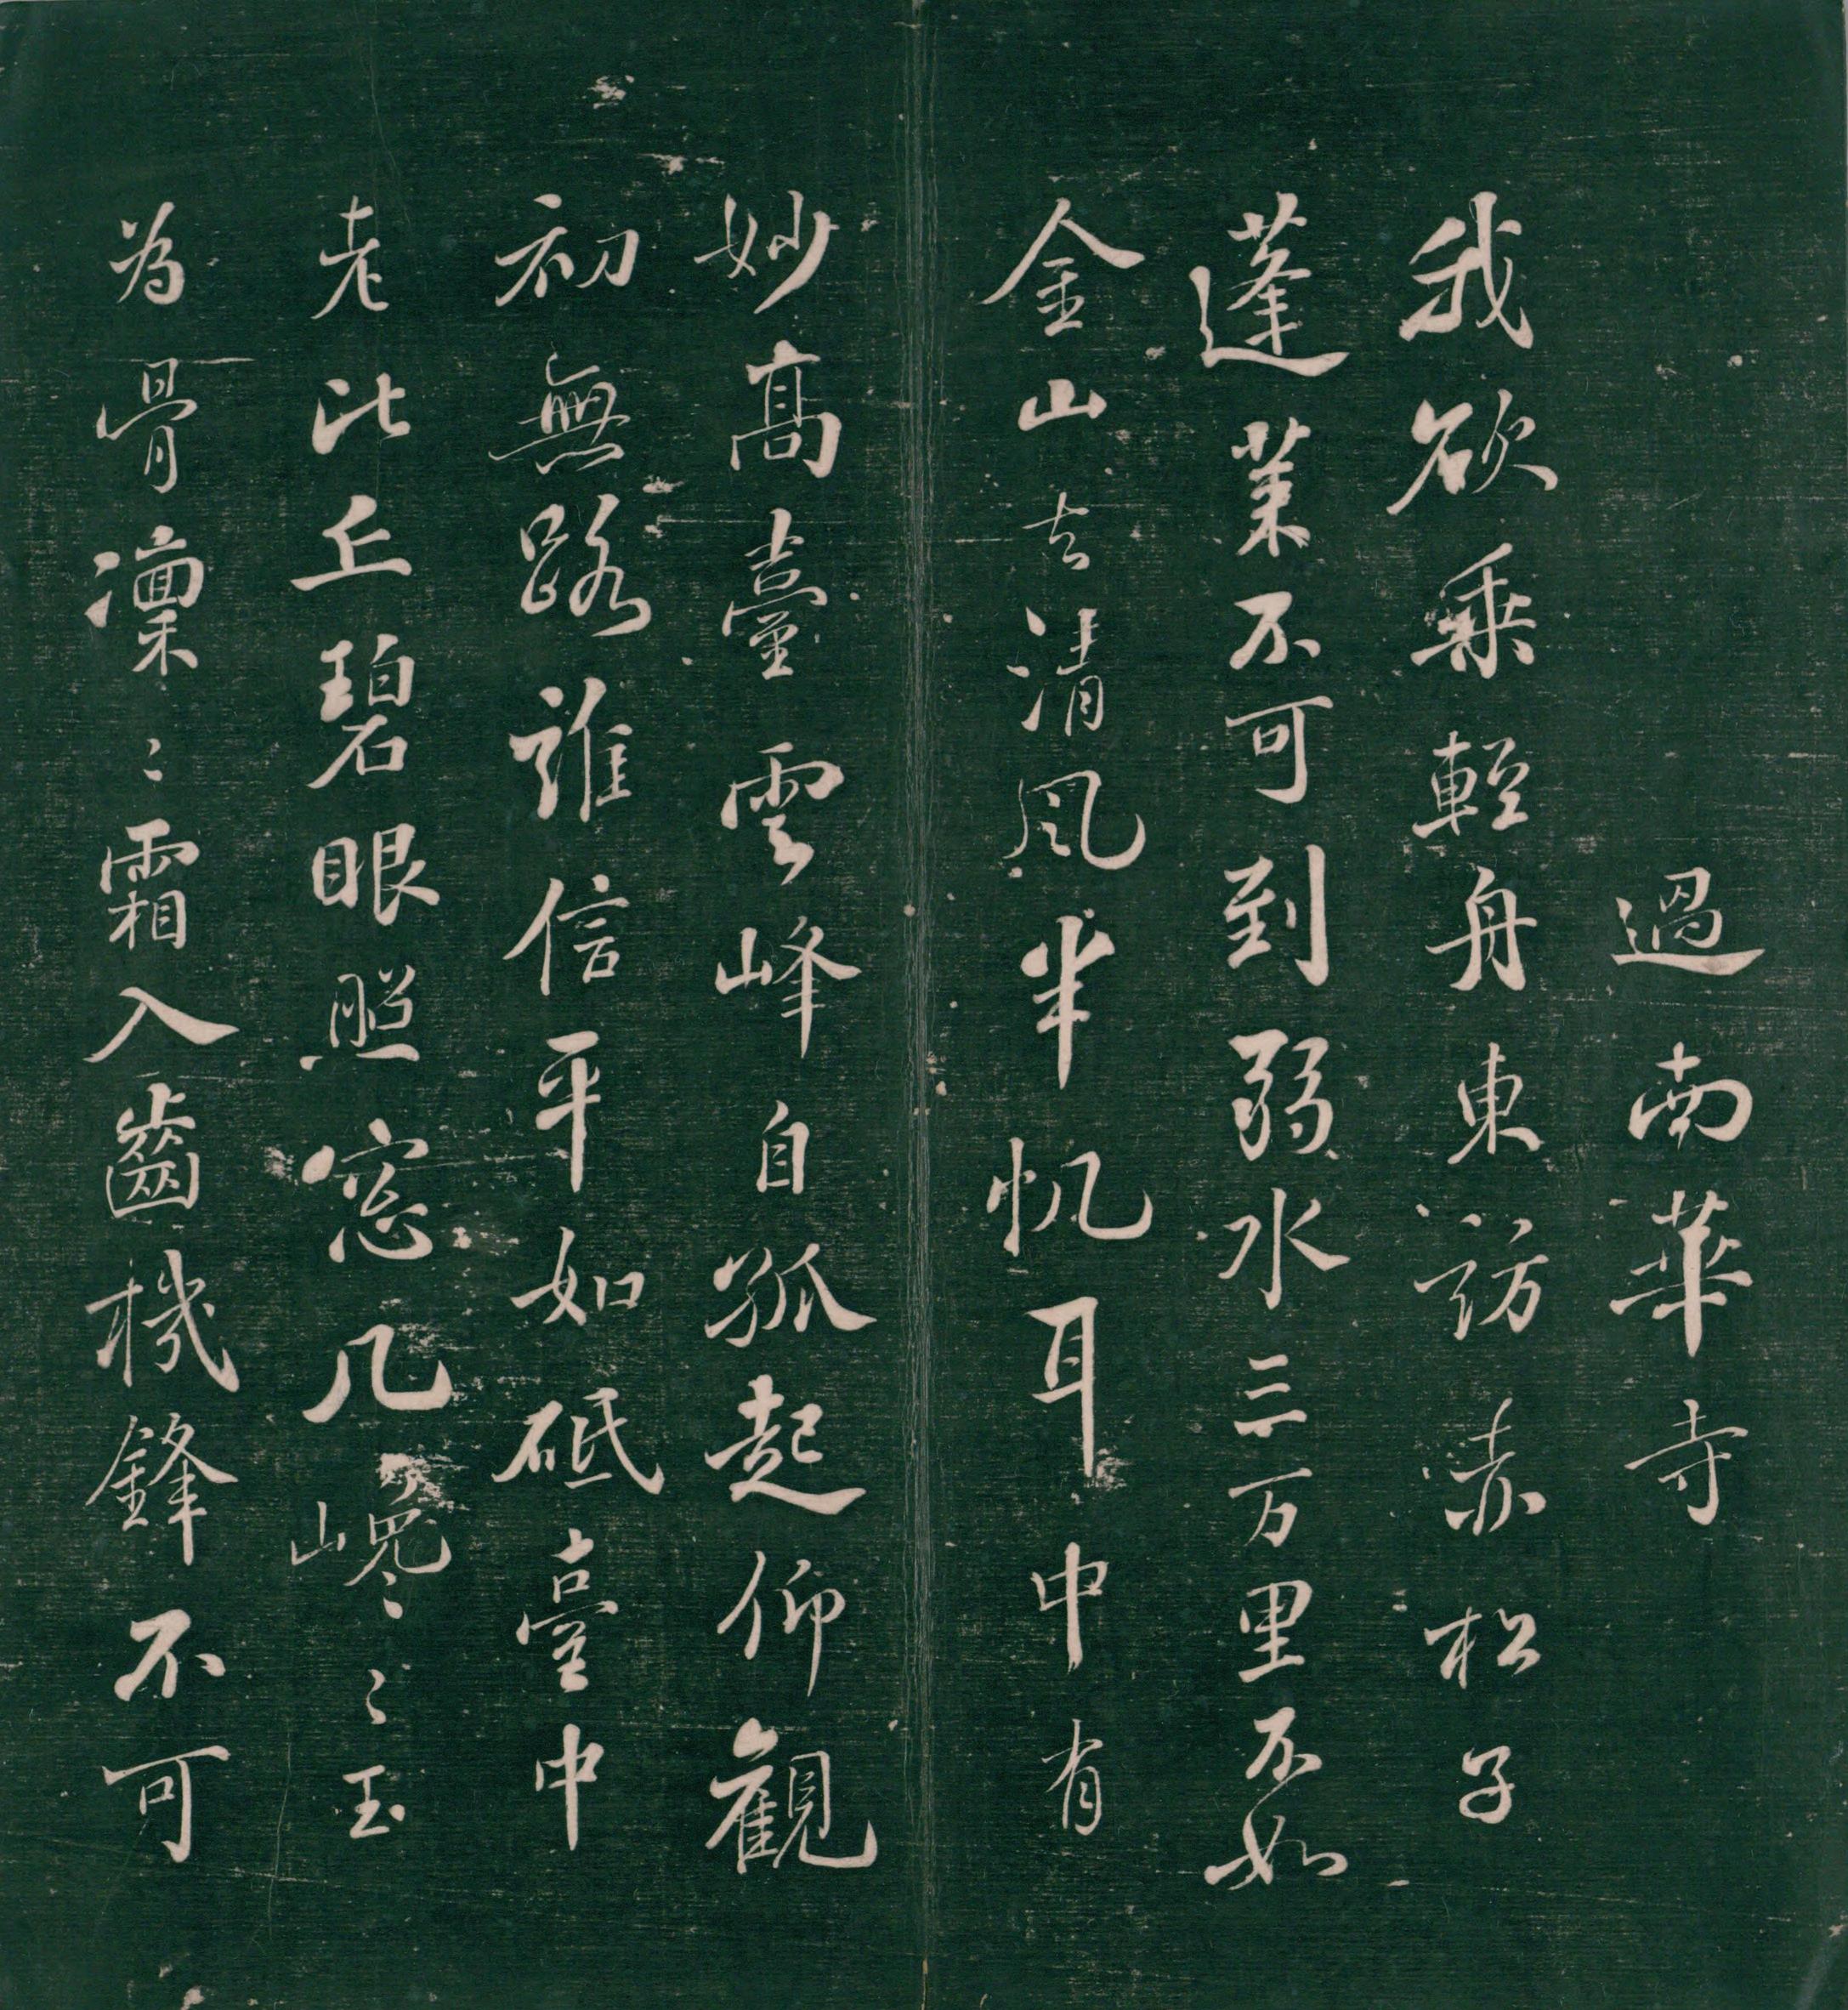 過南華寺
我欲乘輕舟東訪赤松子
蓬莱不可到弱水三万里不如
金山去清風半帆耳中有
妙高臺雲峰自孤起仰觀
初無路誰信平如砥臺中
老比丘碧眼照窓几巉〻玉
為骨凜〻霜入齒機鋒不可